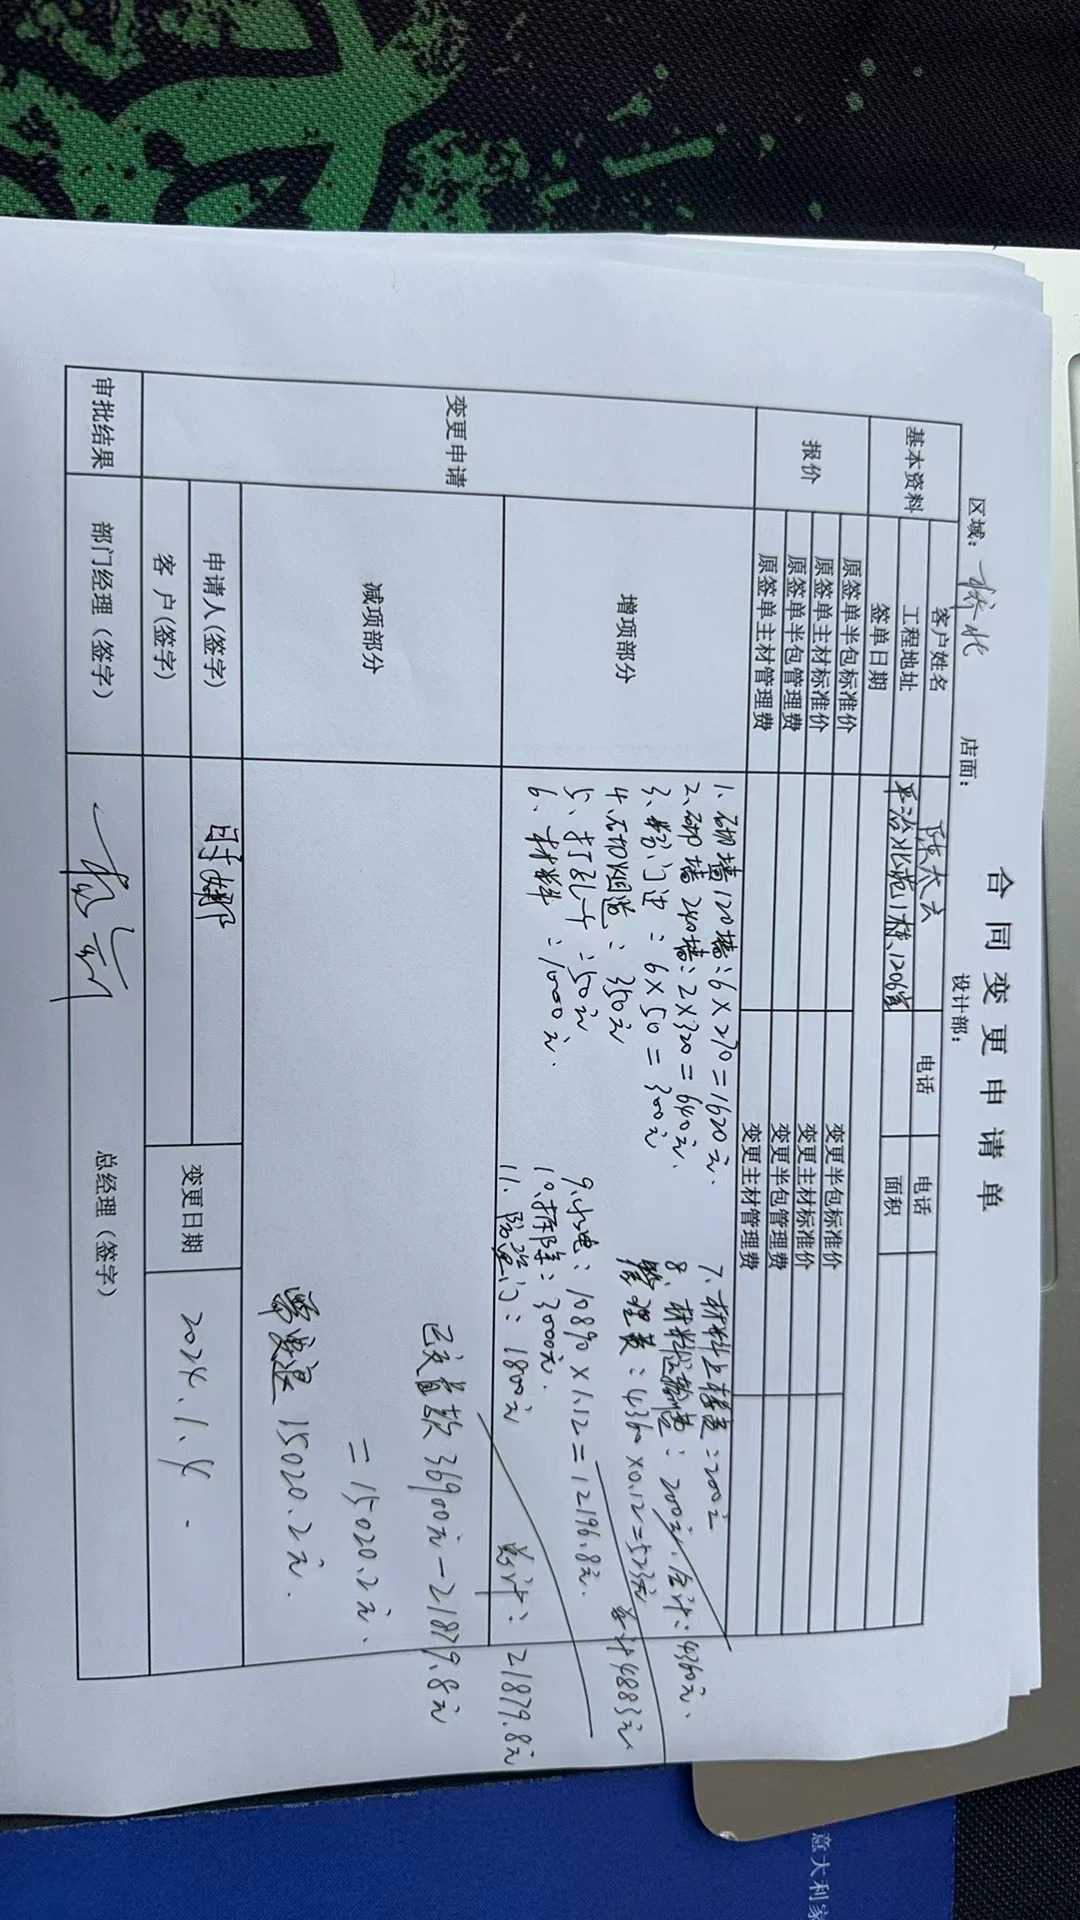 合同变更申请单
区域：桥北 店面： 设计部：
基本资料
客户姓名 陈太云 电话 电话
工程地址 1栋、1206室 面积
签单日期
报价
原签单半包标准价 变更半包标准价
原签单主材标准价 变更主材标准价
原签单半包管理费 变更半包管理费
原签单主材管理费 变更主材管理费
变更申请
增项部分
1、砌墙120墙：6×270=1620元、
2、砌墙 240墙：2×320=640元、
3、粉门边：6×50=300元
4、砌烟道：350元
5、打孔个：50元
6、材料：1000元、
7、材料上楼费：200元
8、材料运输费：200元、合计：4360元、
管理费：4360×0.12=523元 总计4883元
9、水电：10890×1.12=12196.8元、
10、拆除：3000元、
11、防盗门：1800元 总计：21879.8元
减项部分
已交首款36900元-21879.8元
=15020.2元、
需要退15020.2元、
申请人(签字) 时娜
客 户(签字)
变更日期 2024.1.4.
审批结果 部门经理（签字） 总经理（签字）
意大利家